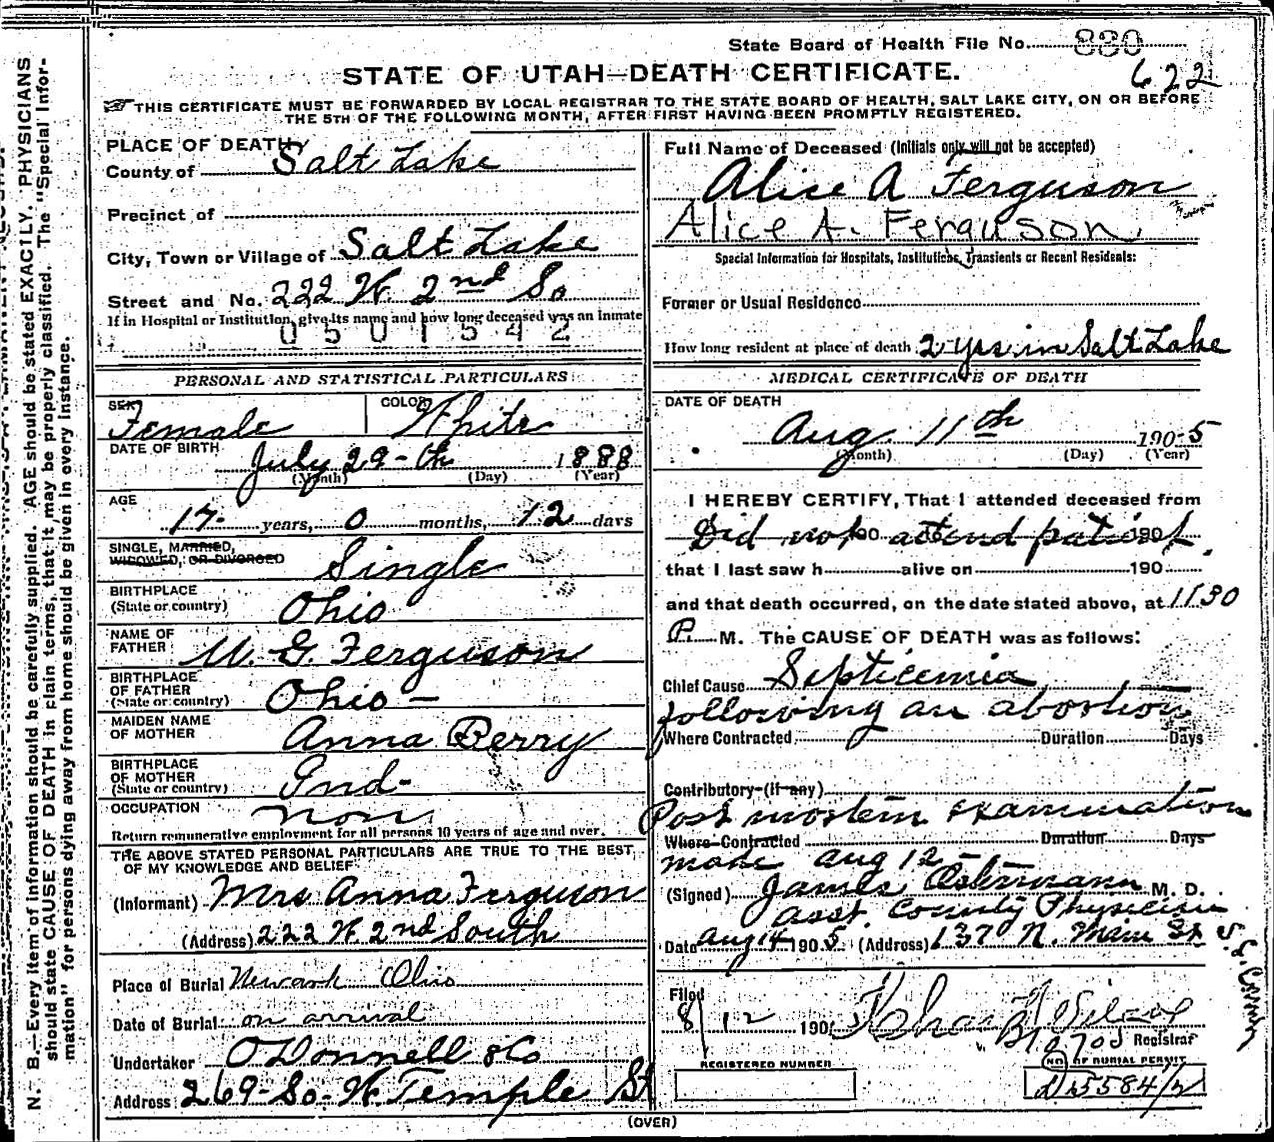 State Board of Health File No. 830
622
STATE OF UTAH—DEATH CERTIFICATE.
THIS CERTIFICATE MUST BE FORWARDED BY LOCAL REGISTRAR TO THE STATE BOARD OF HEALTH, SALT LAKE CITY, ON OR BEFORE
THE 5TH OF THE FOLLOWING MONTH, AFTER FIRST HAVING BEEN PROMPTLY REGISTERED.
PLACE OF DEATH
County of Salt Lake
Precinct of
City, Town or Village of Salt Lake
Street and No. 222 W. 2nd So
If in Hospital or Institution, give its name and how long deceased was an inmate
0501542
PERSONAL AND STATISTICAL PARTICULARS
SEX Female
COLOR White
DATE OF BIRTH July 29-th 1888
(Month) (Day) (Year)
AGE
17 years, 0 months, 12 days
SINGLE, MARRIED,
WIDOWED, OR DIVORCED Single
BIRTHPLACE
(State or country) Ohio
NAME OF
FATHER W. G. Ferguson
BIRTHPLACE
OF FATHER
(State or country) Ohio —
MAIDEN NAME
OF MOTHER Anna Berry
BIRTHPLACE
OF MOTHER
(State or country) Ind-
OCCUPATION Non
Return remunerative employment for all persons 10 years of age and over.
THE ABOVE STATED PERSONAL PARTICULARS ARE TRUE TO THE BEST
OF MY KNOWLEDGE AND BELIEF
(Informant) Mrs Anna Ferguson
(Address) 222 W. 2nd South
Place of Burial Newark Ohio
Date of Burial on arrival
Undertaker O'Donnell & Co
Address 269- So. W. Temple St
Full Name of Deceased (Initials only will not be accepted)
Alice A Ferguson
Alice A. Ferguson
Special Information for Hospitals, Institutions, Transients or Recent Residents:
Former or Usual Residence
How long resident at place of death 2 yrs in Salt Lake
MEDICAL CERTIFICATE OF DEATH
DATE OF DEATH
Aug. 11th 1905
(Month) (Day) (Year)
I HEREBY CERTIFY, That I attended deceased from
Did not attend patient.
that I last saw h alive on 190
and that death occurred, on the date stated above, at 1130
P. M. The CAUSE OF DEATH was as follows:
Chief Cause Septicemia
following an abortion
Where Contracted Duration Days
Contributory (If any)
Post mortem examination
Where Contracted Duration Days
made Aug 12 -
(Signed) James Ostermann M. D.
asst. County Physician
Date Aug 14 1905 (Address) 137 N. Main St
Filed
8/12 190
Registrar
REGISTERED NUMBER
NO. OF BURIAL PERMIT
(OVER)
N. B.—Every item of information should be carefully supplied. AGE should be stated EXACTLY. PHYSICIANS
should state CAUSE OF DEATH in plain terms, that it may be properly classified. The "Special Infor-
mation" for persons dying away from home should be given in every instance.